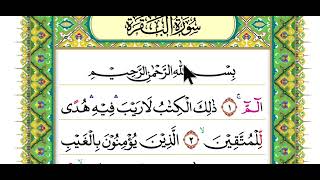 سُورَةُ الْبَقَرَةِ
بِسْمِ اللّٰهِ الرَّحْمٰنِ الرَّحِيْمِ
الٓمّٓ ۚ﴿۱﴾ ذٰلِكَ الْكِتٰبُ لَا رَيْبَ ۛ فِيْهِ ۛ هُدًى
لِّلْمُتَّقِيْنَ ۙ﴿۲﴾ الَّذِيْنَ يُؤْمِنُوْنَ بِالْغَيْبِ